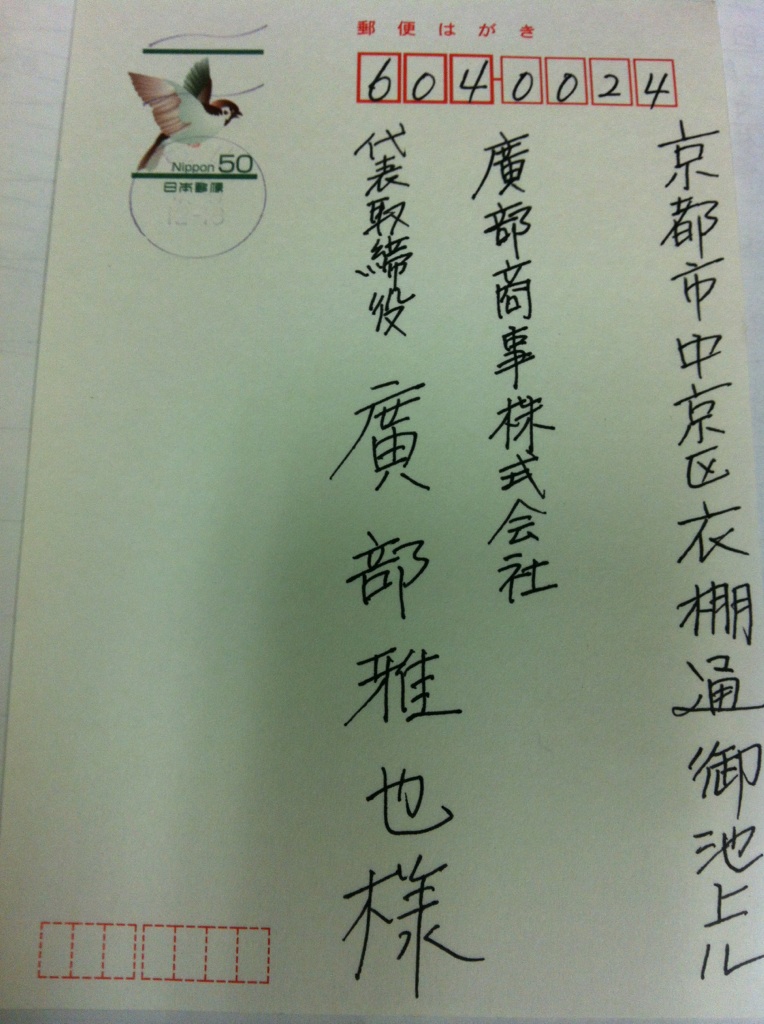 郵便はがき
604-0024
京都市中京区衣棚通御池上ル
廣部商事株式会社
代表取締役 廣部雅也様
Nippon 50
日本郵便